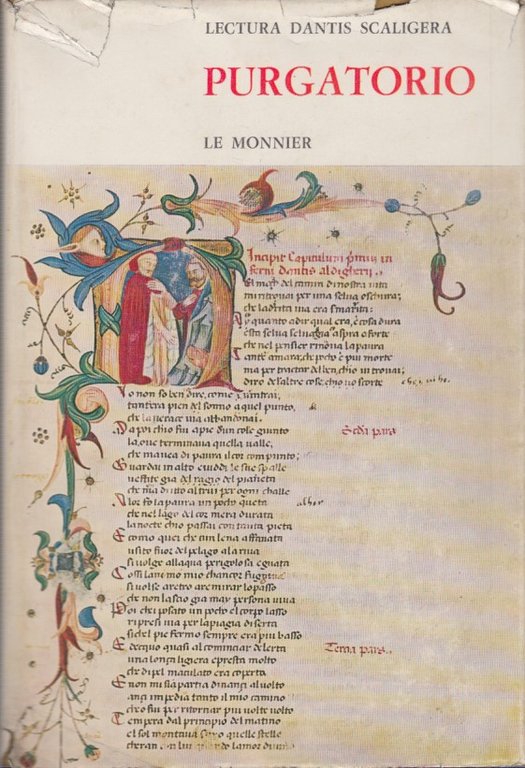 LECTURA DANTIS SCALIGERA
PURGATORIO
LE MONNIER
Incipit Capitulum
ferni dantis aldigherii.
El meço del camin di nostra uita
mi ritrouai per una selua oschura;
che la drita uia era smarita;
quanto a dir qual era, è cosa dura
esta selua seluagia aspra e forte
che nel pensier rinoua la paura
Tante amara; che pocho è piu morte
ma per tractar del ben, chio ui trouai;
diro del altre cose, chio uo scorte
Io non so ben dire, come entrai,
tantera pien del sonno a quel punto,
che la uerace uia abbandonai.
Da poi chio fui apie dun cole giunto
la, oue terminaua quella ualle,
che mauea di paura il cor compunto;
Guardai in alto e uidde le sue spalle
uestite gia del ragio del pianeta
che ma dritto altrui per ogni challe
Alor fo la paura un pocho queta
che nel lago del cor mera durata
la nocte chio passai con tanta pieta
E como quei che cun lena affanata
usito fuor del pelago a la riua
si uolge allaqua perigolosa e guata
Cossi lanimo mio
si uolse aretro a remirar lo passo
che non lascio gia may persona uiua
Poi che posato un pocho el corpo lasso
ripresi uia per la piagia diserta
siche l pie fermo sempre era piu basso
E decquo quasi al cominciar de lerta
una lonza ligiera e presta molto
che di pel maculato era coperta
E non mi sia partia dinançi al uolto
ançi impedia tanto il mio camino
chio fui per ritornar piu uolte uolto
Tempera dal principio del matino
el sol montaua suso quelle stelle
cheran con lui quando lamor diuino
Secda pars
Tercia pars.